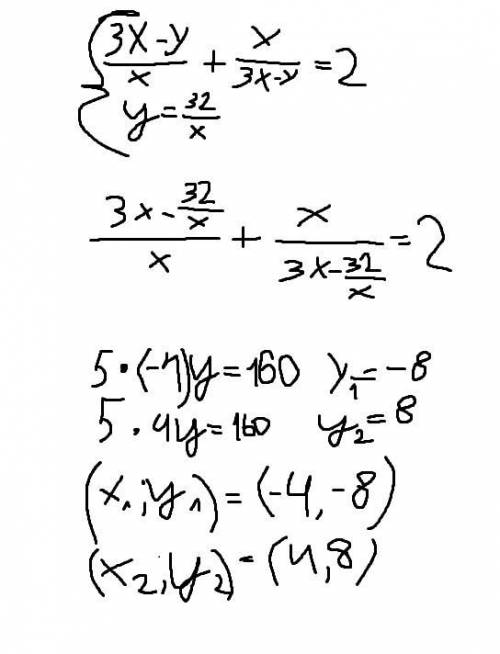 { (3x-y)/x + x/(3x-y) = 2
y = 32/x
(3x - 32/x)/x + x/(3x - 32/x) = 2
5·(-4)y=160 y₁=-8
5·4y=160 y₂=8
(x₁;y₁)=(-4,-8)
(x₂;y₂)=(4,8)